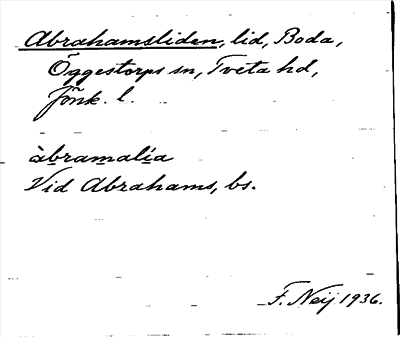 Abrahamsliden, lid, Boda,
Öggestorps sn, Tveta hd,
Jönk. l.
àbramalía
Vid Abrahams, bs.
F. Neij 1936.